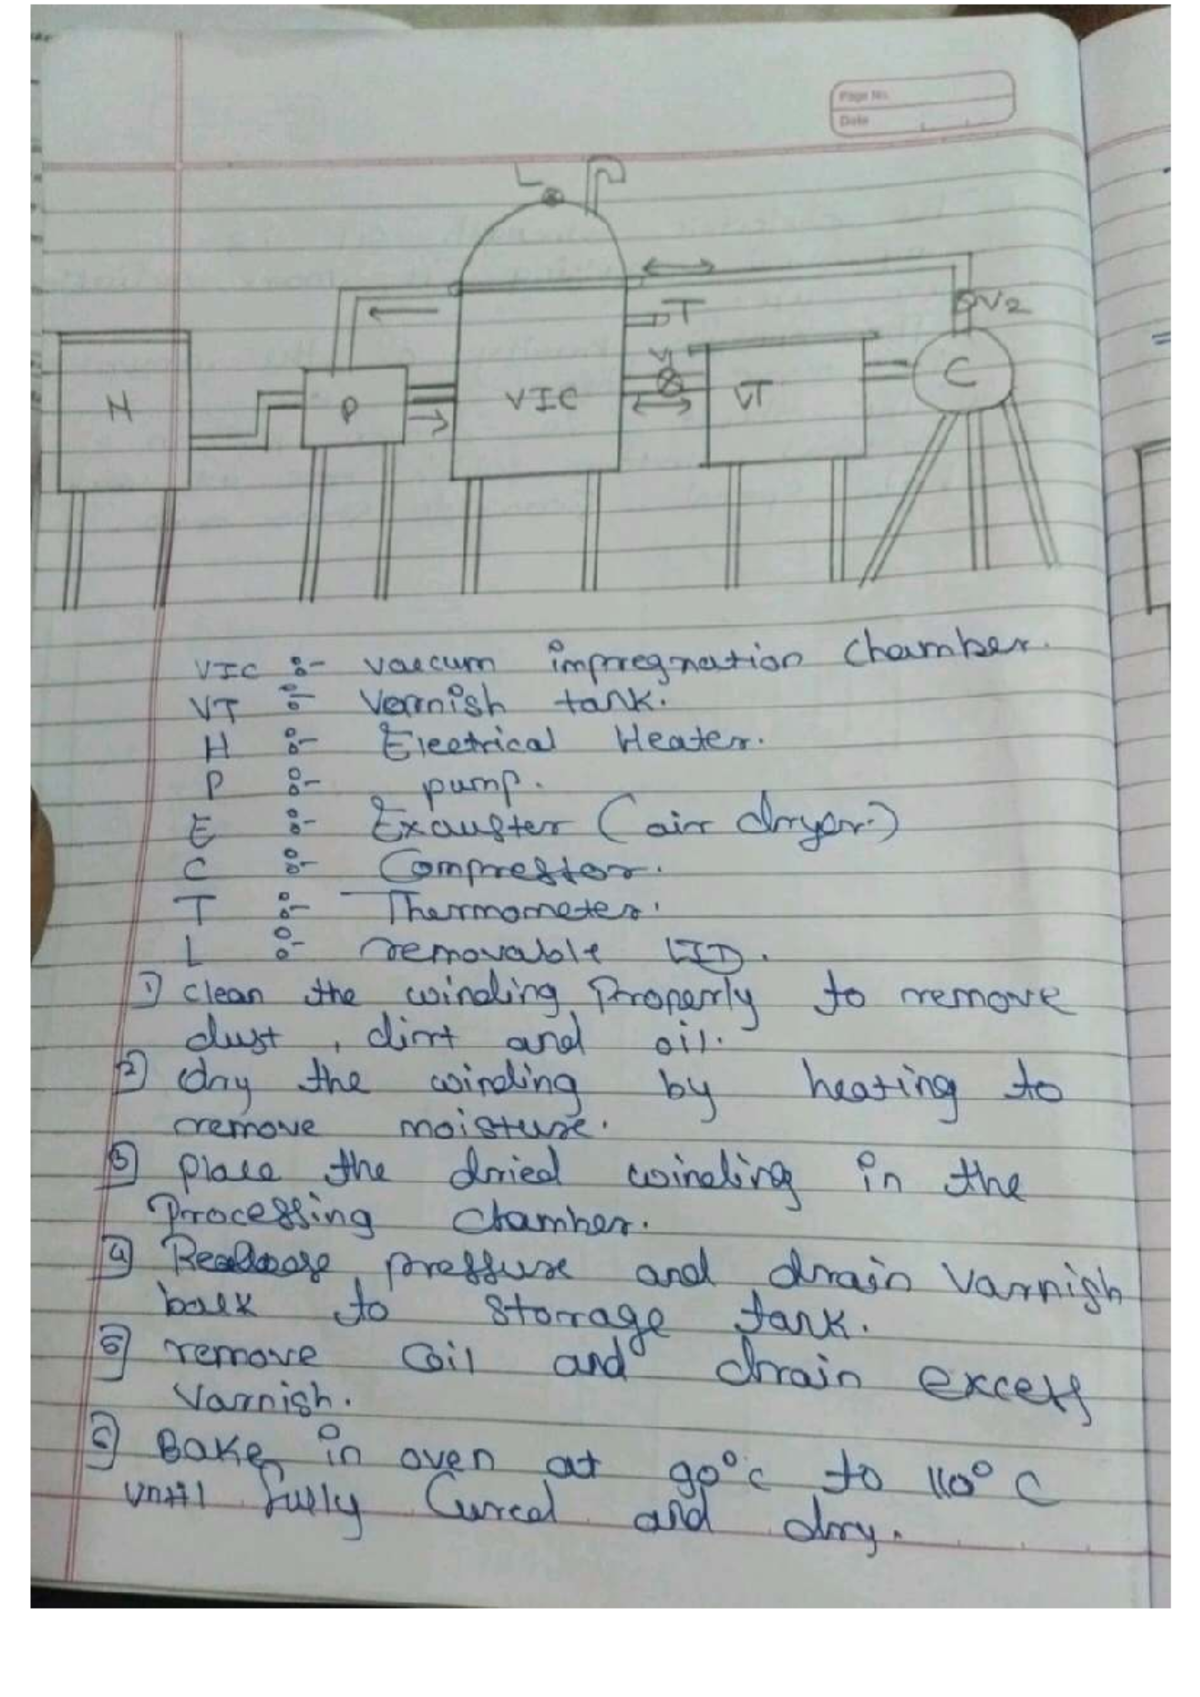 Page No.
Date
L
T
V2
V
N
P
VIC
VT
C
VIC :- vaecum impregnation chamber.
VT :- Vernish tank.
H :- Electrical Heater.
P :- pump.
E :- Exauster (air dryer.)
C :- Compressor.
T :- Thermometer.
L :- removable LID.
1) clean the winding Properly to remove
dust, dirt and oil.
2) dry the winding by heating to
remove moisture.
3) place the dried winding in the
Processing chamber.
4) pressure and drain Varnish
back to storage tank.
5) remove coil and drain excess
Varnish.
6) Bake in oven at 90°C to 110°C
until fully Cured and dry.